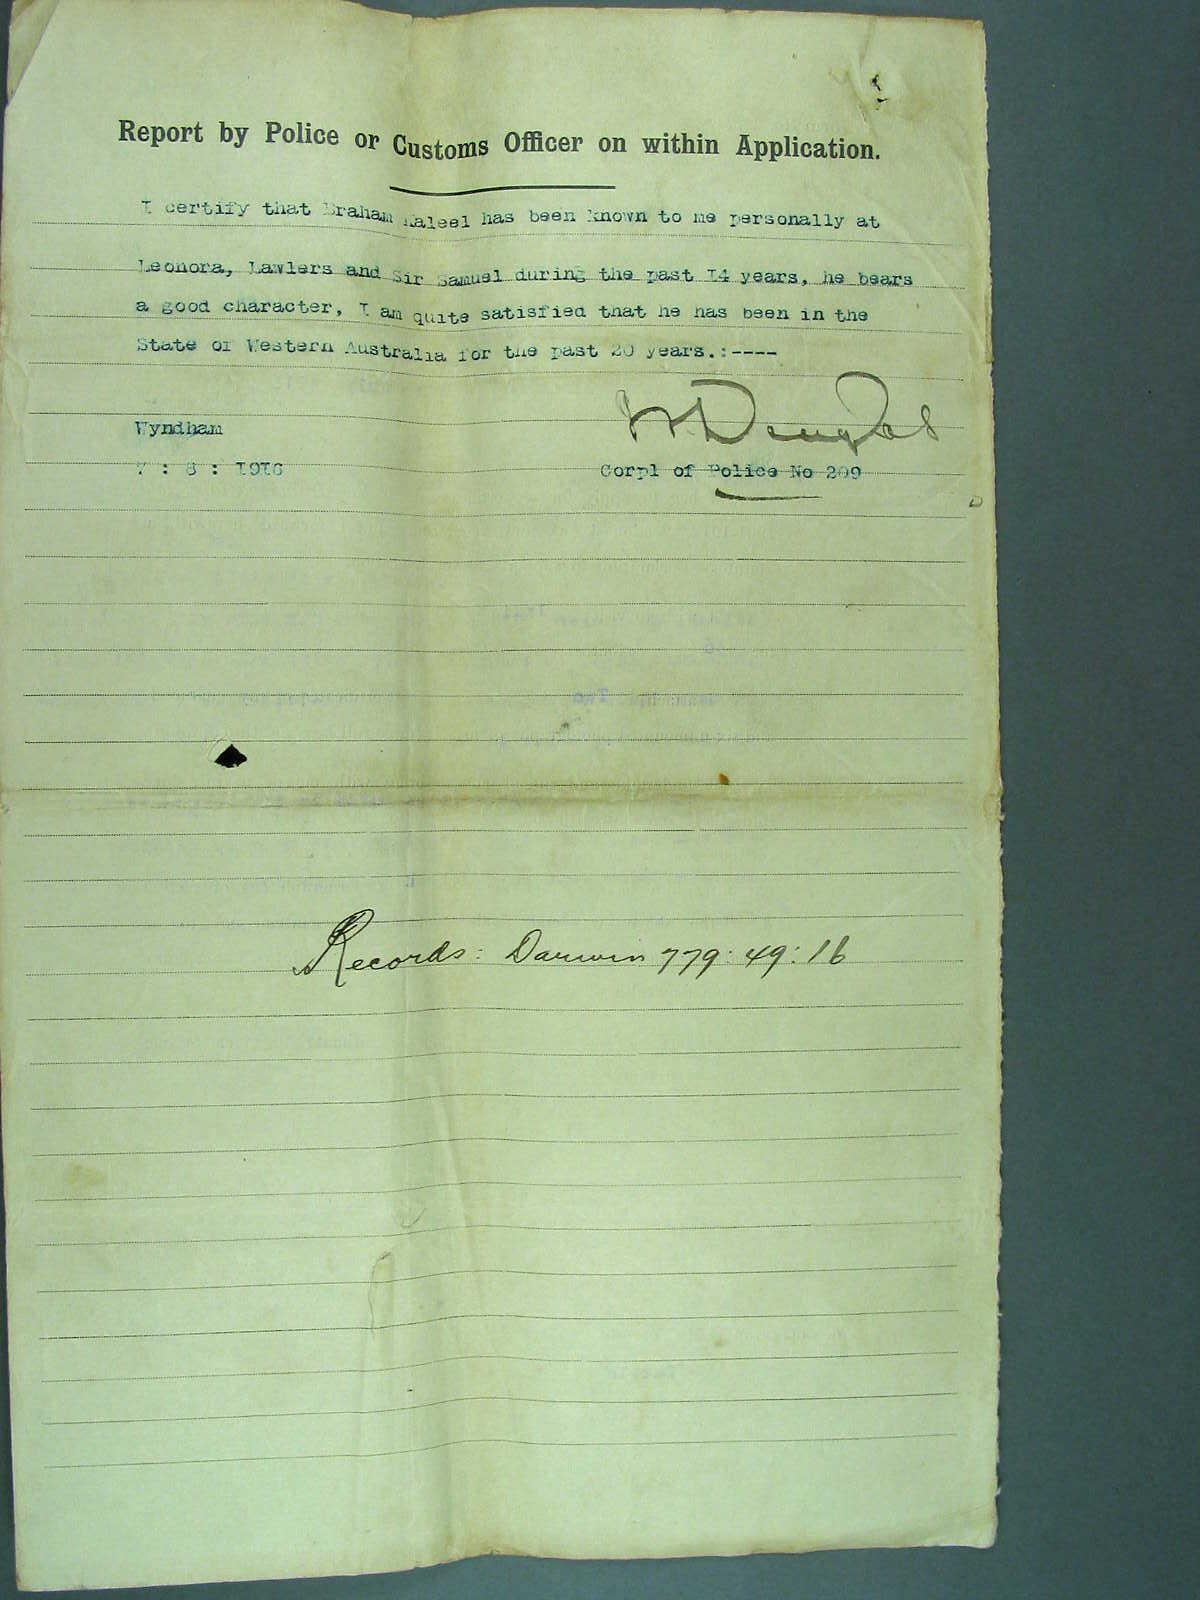 Report by Police or Customs Officer on within Application.
I certify that Braham Kaleel has been known to me personally at
Leonora, Lawlers and Sir Samuel during the past 14 years, he bears
a good character, I am quite satisfied that he has been in the
State of Western Australia for the past 20 years.:----
W. Douglas
Wyndham
7 : 8 : 1916
Corpl of Police No 209
Records: Darwin 779:49:16